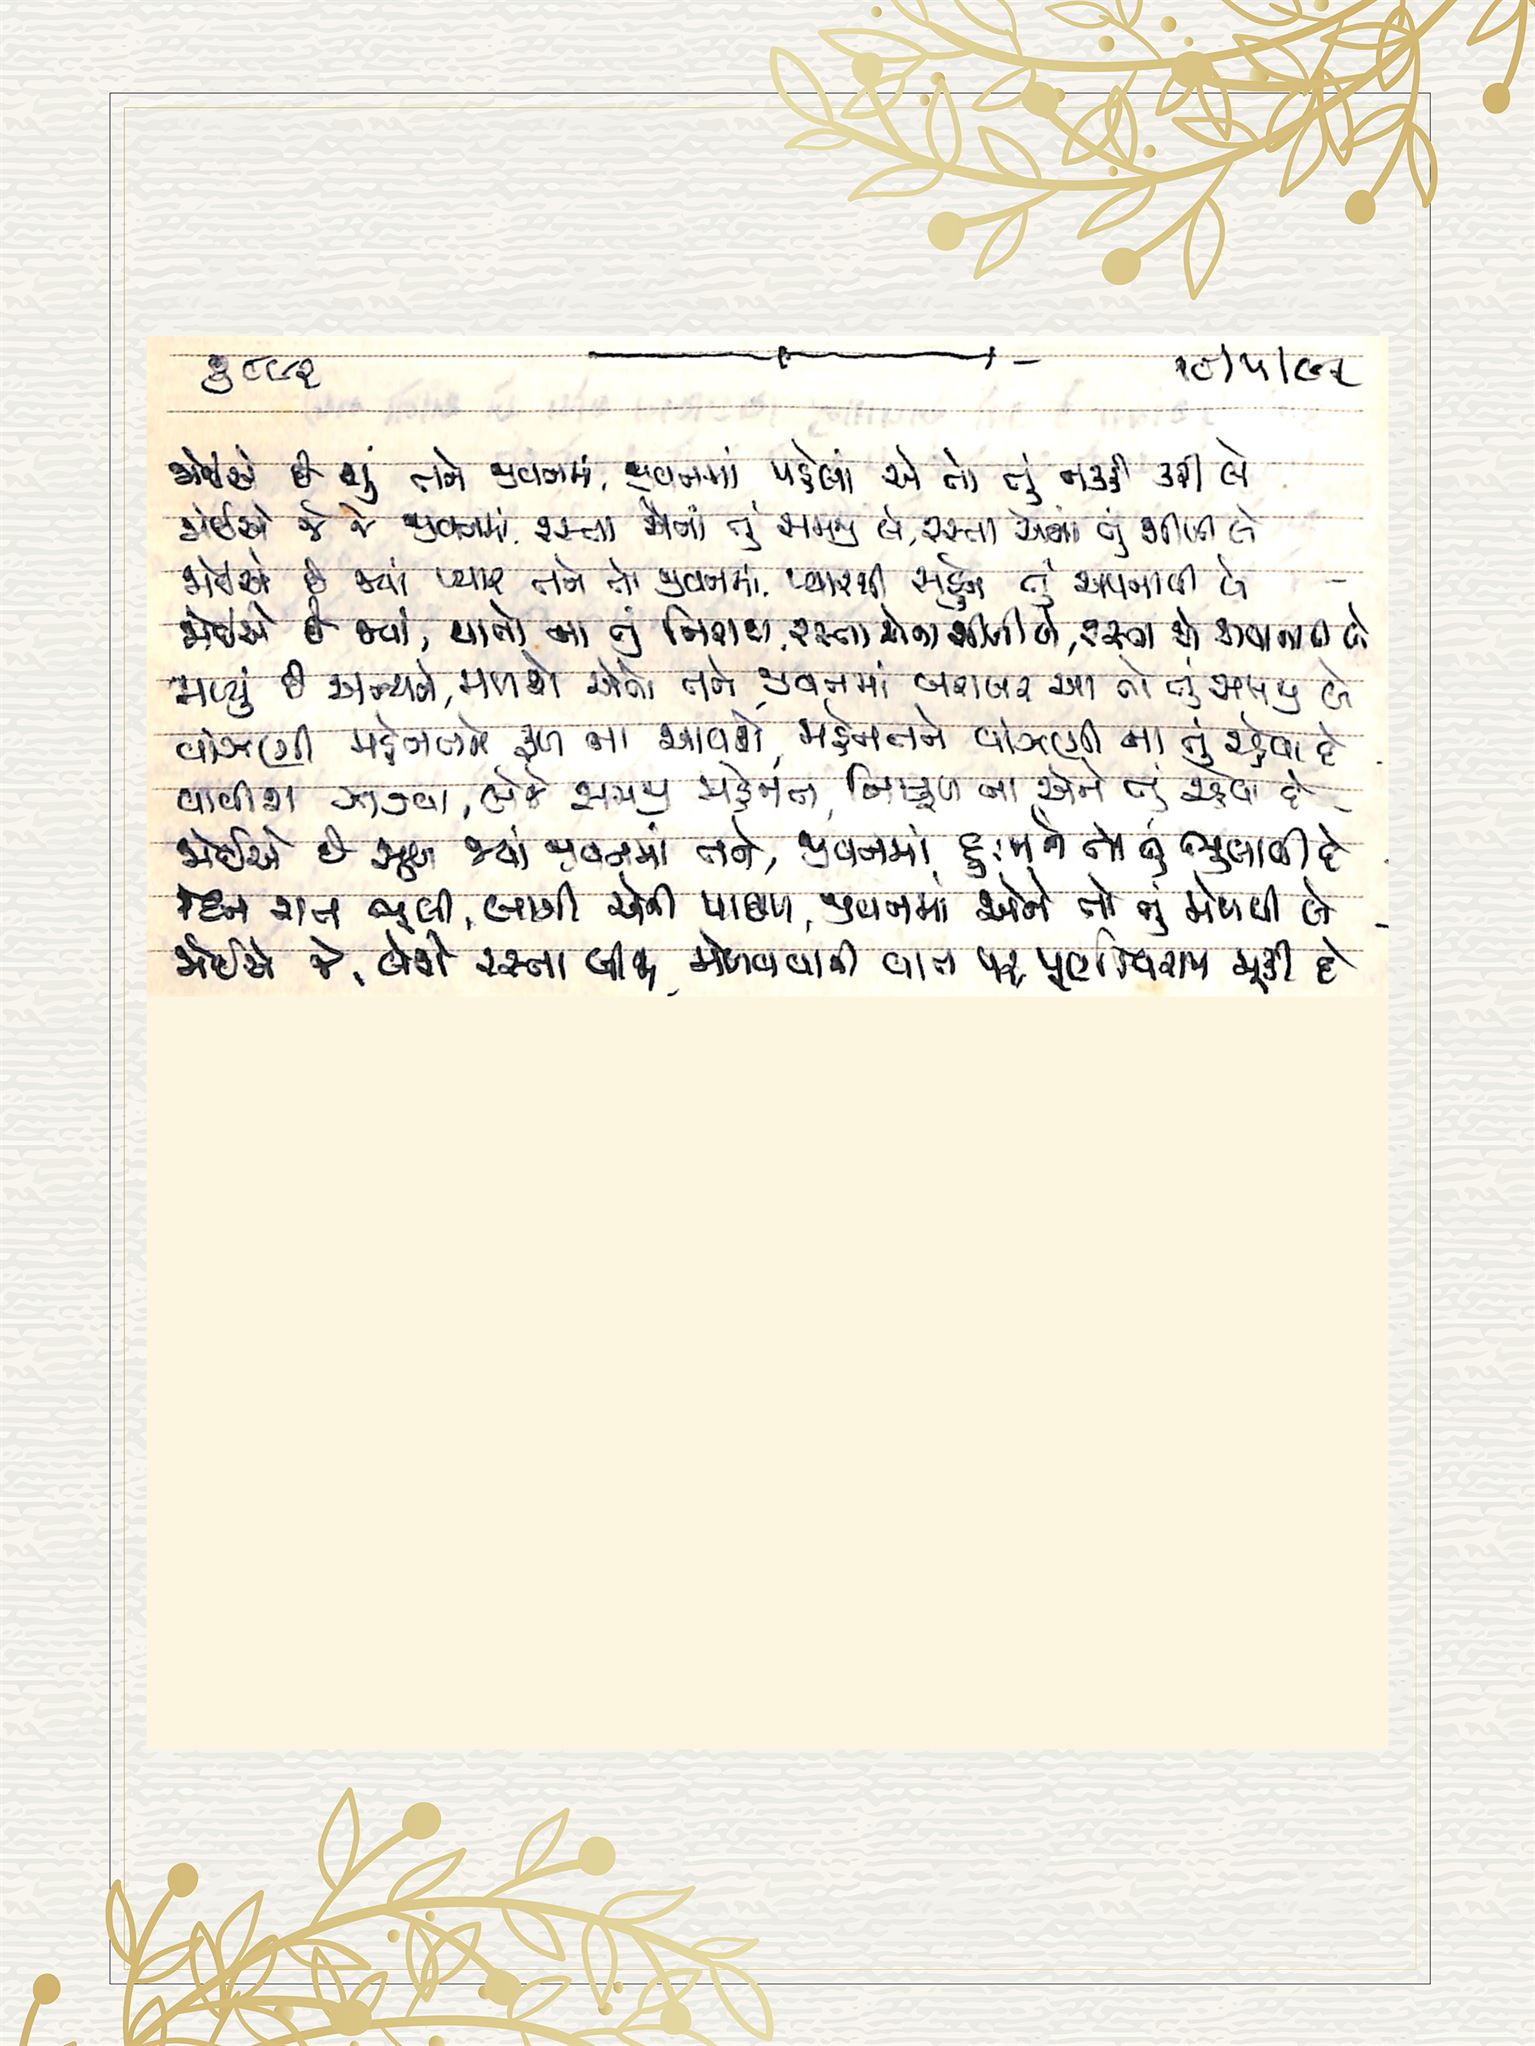 ૧૦/૫/૯૨
જોઈએ છે શું તને જીવનમાં, જીવનમાં પહેલાં એ તો તું નક્કી કરી લે
જોઈએ જે જે જીવનમાં, રસ્તા એનાં તું સમજી લે, રસ્તા એનાં તું શીખી લે
જોઈએ છે જ્યાં પ્યાર તને તો જીવનમાં, પ્યારથી સહુને તું અપનાવી લે
જોઈએ છે જ્યાં, થાતો ના તું નિરાશ, રસ્તા એના શીખી લે, રસ્તા એ અપનાવી લે
મળ્યું છે અન્યને, મળશે એતો તને જીવનમાં બરાબર આ તો તું સમજી લે
વાંઝણી મહેનતને ફળ ના આવશે, મહેનતને વાંઝણી ના તું રહેવા દે
વાવીશ ઝાડવા, લેજે સમજી મહેનત, નિષ્ફળ ના એને તું રહેવા દે
જોઈએ છે સુખ જ્યાં જીવનમાં તને, જીવનમાં દુઃખને તો તું ભુલાવી દે
દિન રાત ભૂલી, લાગી એની પાછળ, જીવનમાં એને તો તું મેળવી લે
જોઈએ જે, લેશે રસ્તા બીજા, મેળવવાની વાત પર પૂર્ણવિરામ મૂકી દે